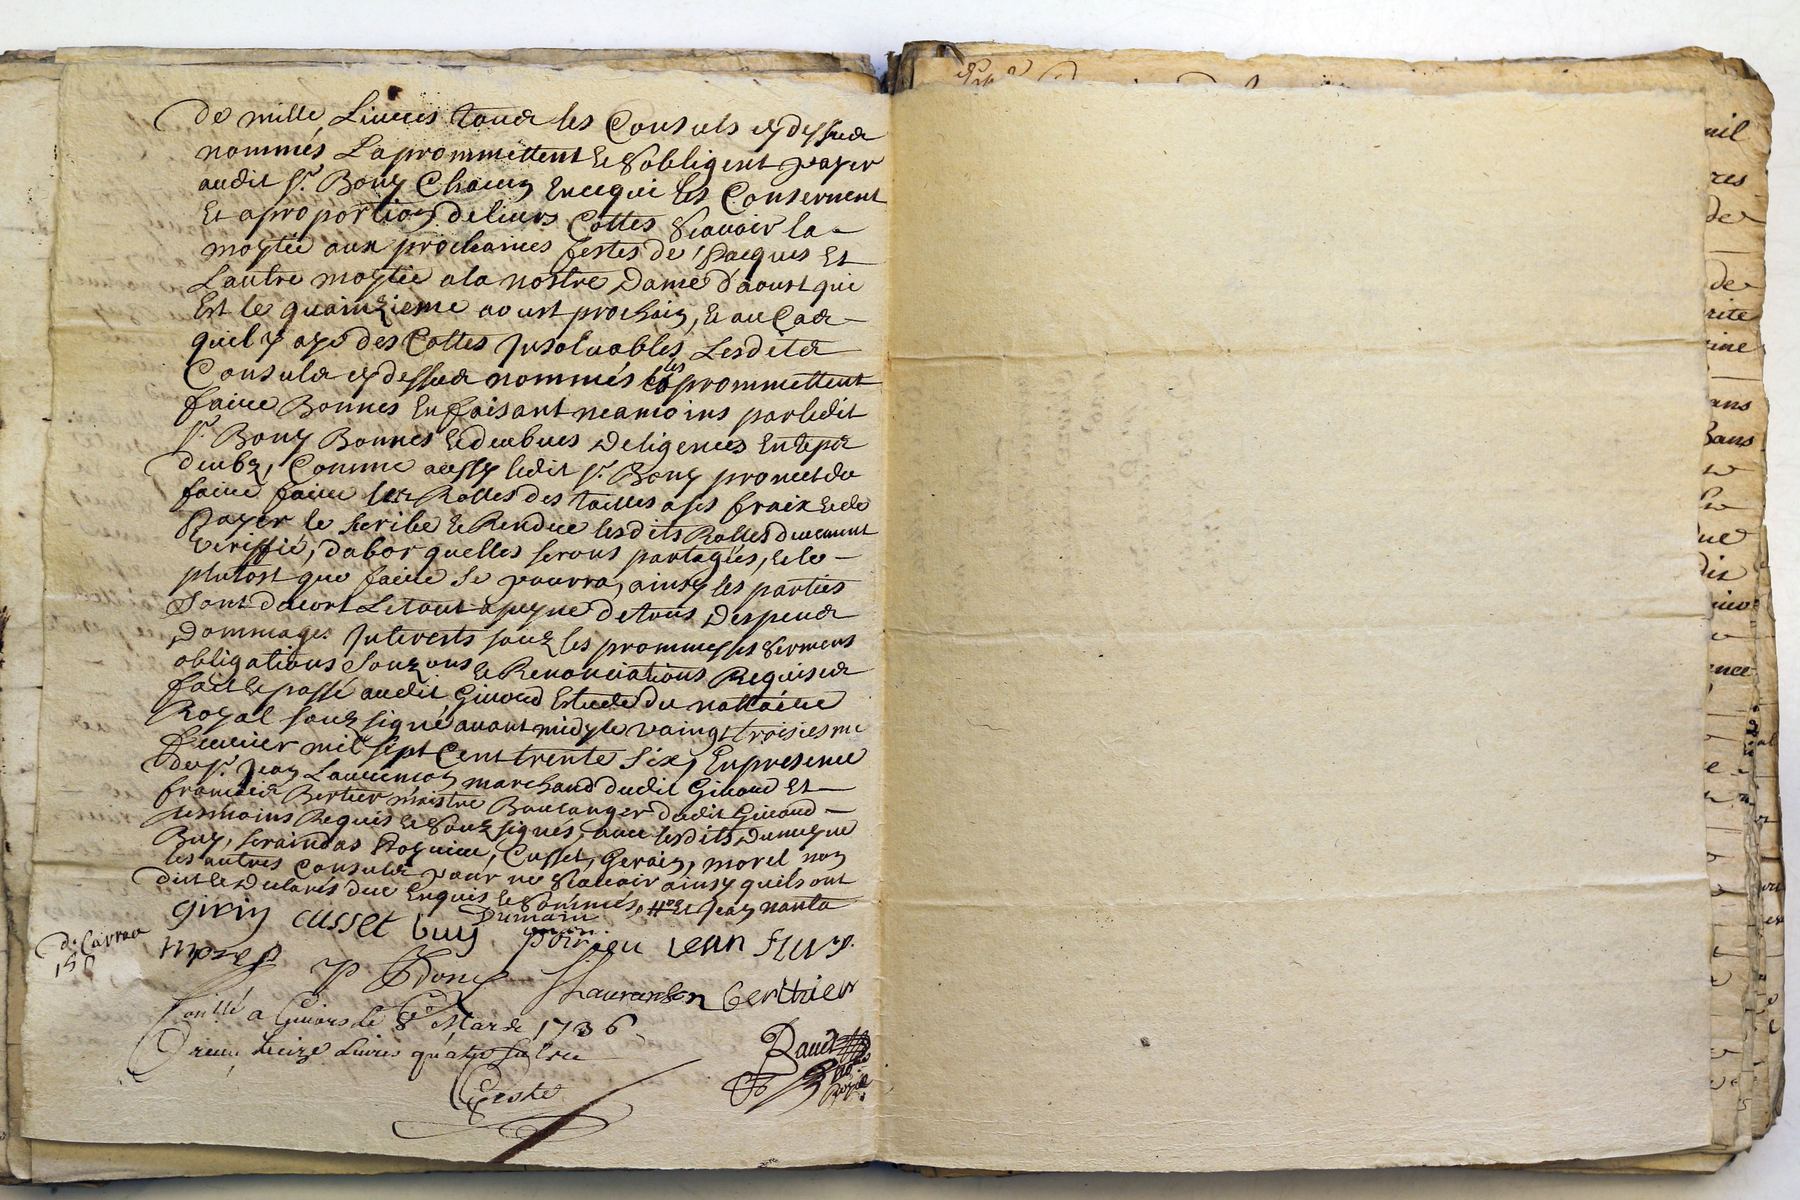 de mille Livres tous les Consuls cy dessus
nommés La prommettent et s'obligent payer
audit Sr. Bony Chacun En ce qui les Consernent
Et a proportion de leurs Cottes Scavoir la
moytié aux prochaines festes de Pacques Et
Lautre moytié a la nostre Dame d'aoust qui
Est le quainzieme aoust prochain, et au Cas
quil y aye des Cottes Insoluables Lesdits
Consuls cy dessus nommés les prommettent
faire Bonnes En faisant neamoins par ledit
Sr. Bony Bonnes et deubues Deligences En temps
deubz, Comme aussy ledit Sr. Bony promet de
faire faire les Rolles des tailles a ses fraix et de
Payer le scribe et Rendre lesdits Rolles deuement
veriffié, dabor quelles serons partagées, et le
plutost que faire se pourra, ainsy les parties
Sont dacort Le tout a peyne de tous Despens
Dommages Interests souz les prommesses serments
obligations souz et Renonciations Requises
fait et passé audit Givord Estude du nottaire
Royal souz signé avant midy le vaingt troisiesme
feuvrier mil sept Cent trente six, En presence
de Sr. Jean Laurenson marchand dudit Givord Et
francois Bertier maistre Boulanger dudit Givord
tesmoins Requis et Souz signés, avec lesdits Dumeyne
Buy, Cusset, Gerin, morel non
les autres Consuls pour ne Scavoir ainsy quils ont
dict et Declarés de ce Enquis et Sommés, et Jean
girin cusset buy Dumain
morel Jean
P Bony Lauranson berthier
a Givors le 8e Mars 1736
Receu treize Livres quatre sols